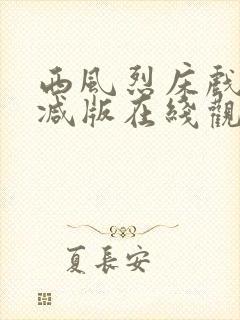 西風烈床戲
減版在綫觀
夏長安